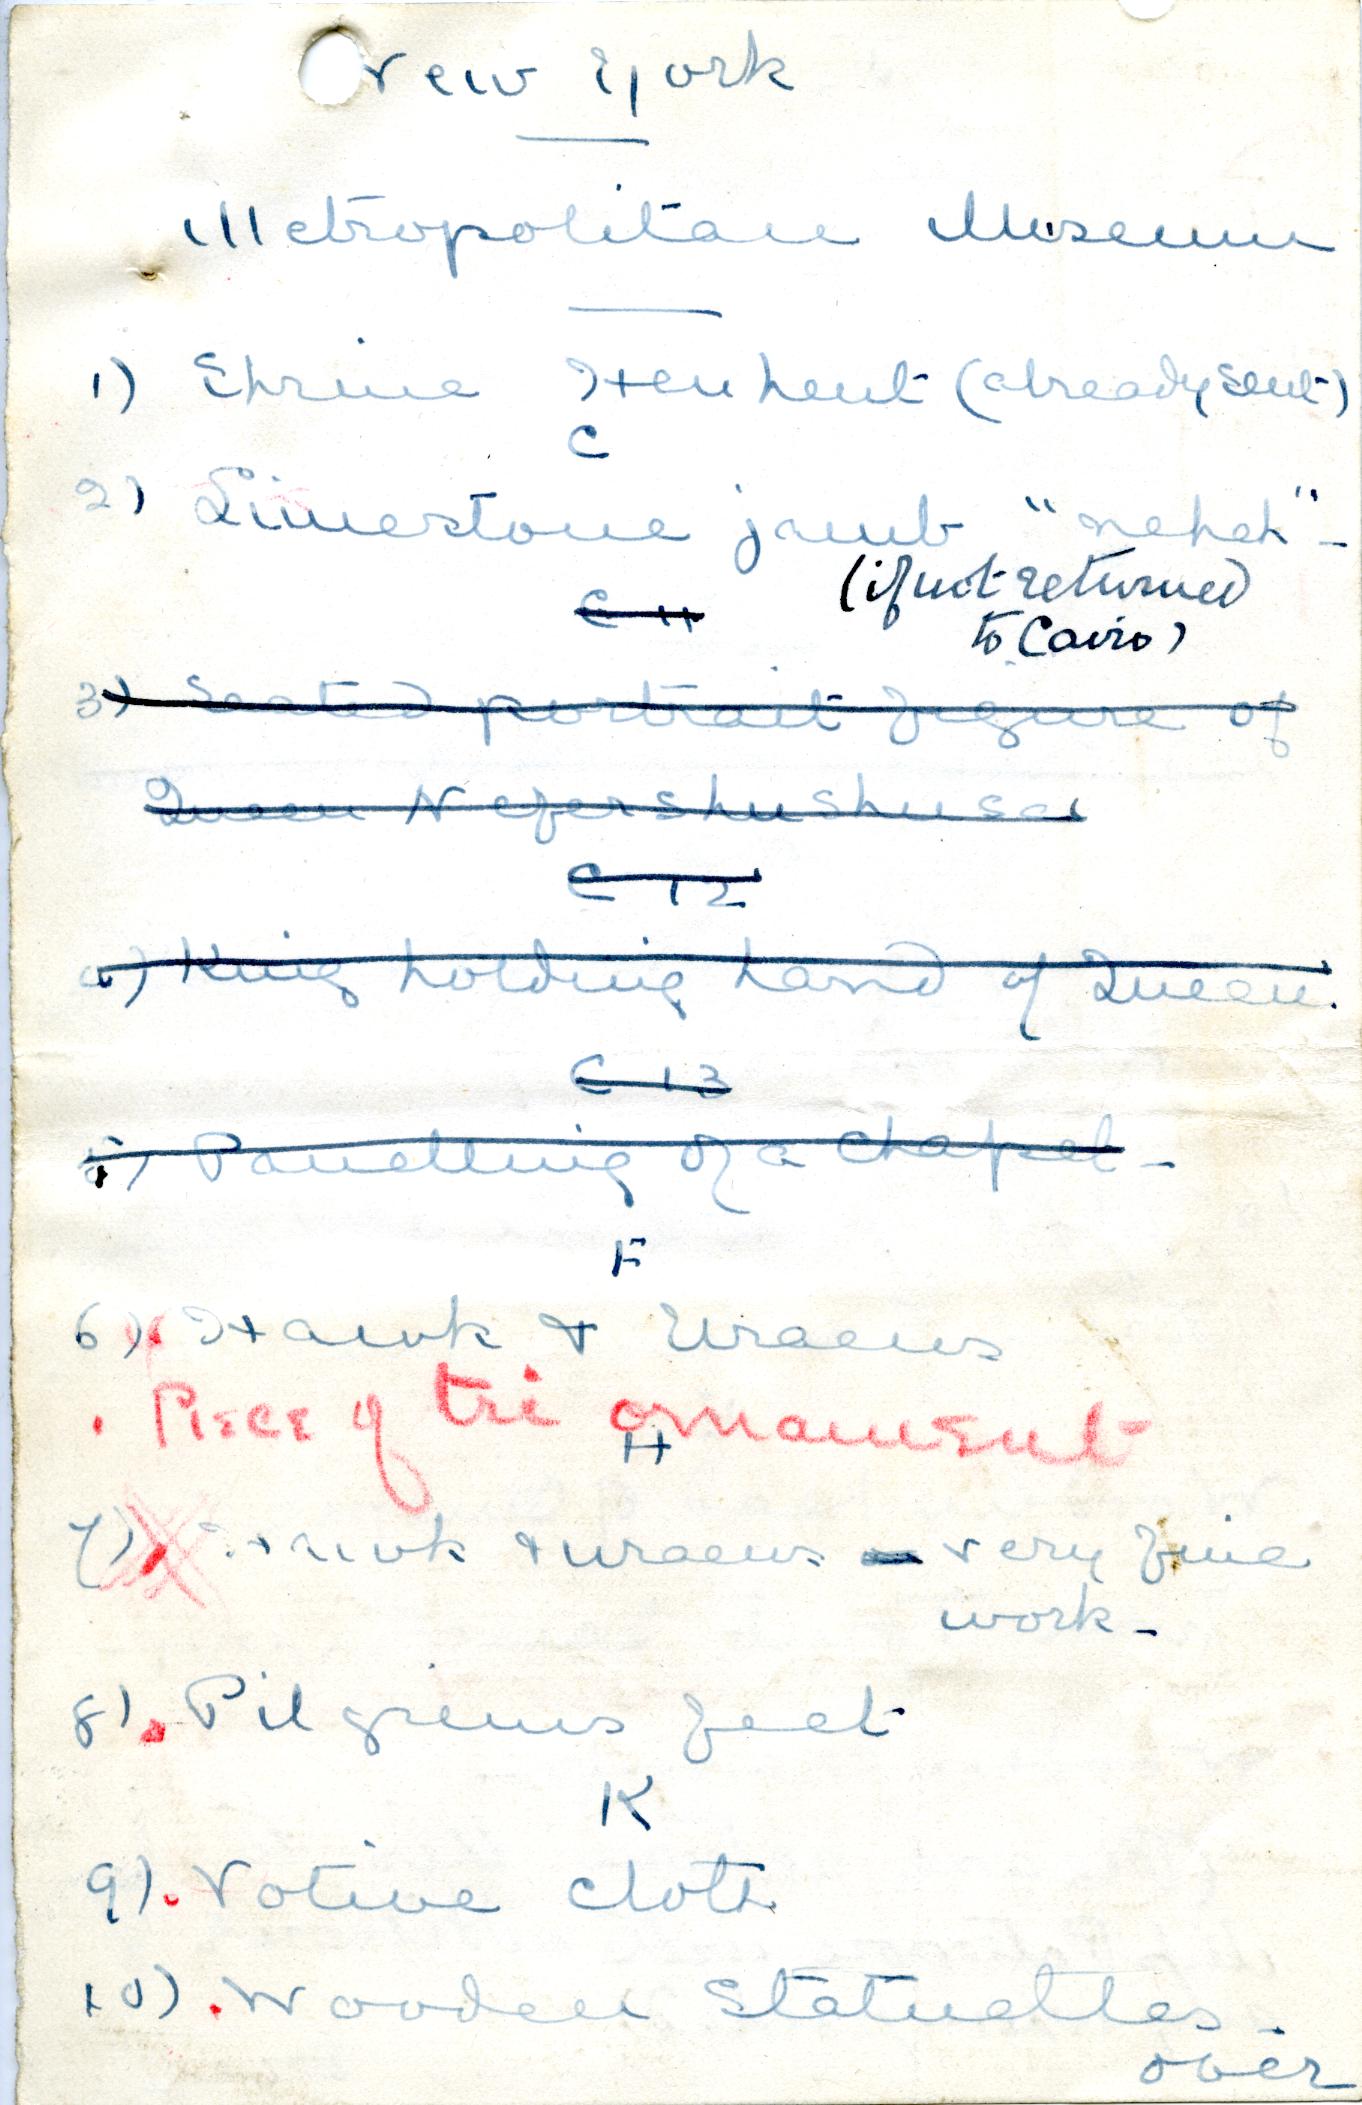 New York
Metropolitan Museum
1) Shrine Henhenit (already sent)
C
2) Limestone jamb "neheh" -
(if not returned
to Cairo)
C 11
3) Seated portrait figure of
Queen Nefershushusa
C 12
4) King holding hand of Queen.
C 13
5) Panelling of a chapel -
F
6) Hawk & Uraeus
. Piece of tri ornament
H
7) Hawk & uraeus - very fine
work -
8) . Pilgrims feet
K
9) . Votive cloth
10) . Wooden Statuettes -
over